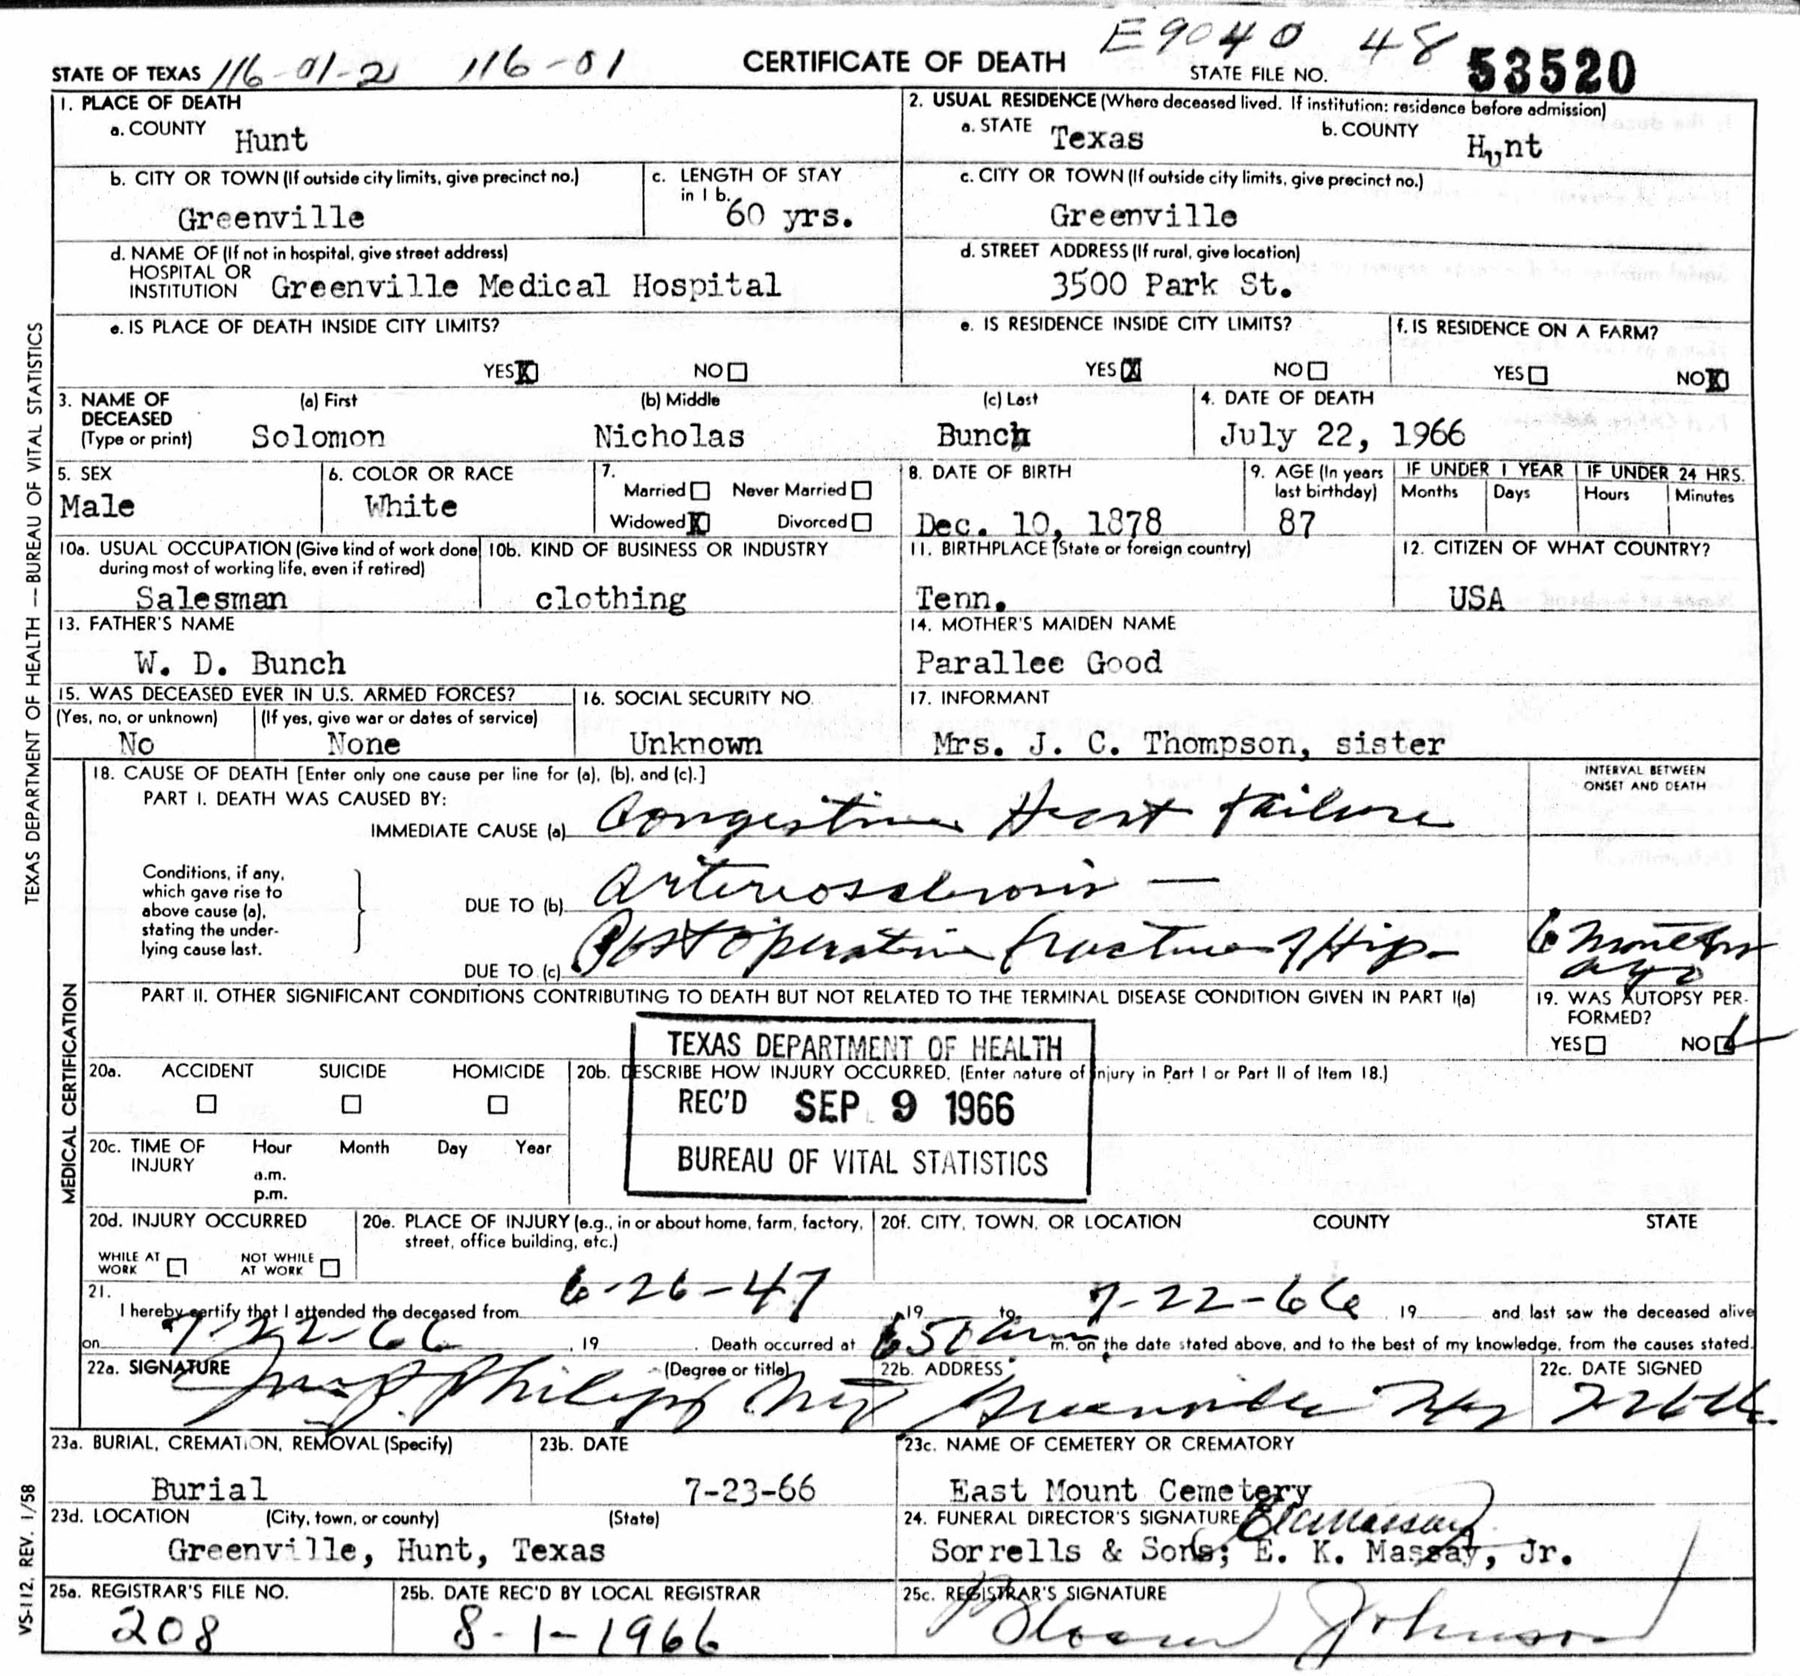 E9040 48
STATE OF TEXAS 116-01-2 116-01 CERTIFICATE OF DEATH STATE FILE NO. 53520
1. PLACE OF DEATH
a. COUNTY Hunt
2. USUAL RESIDENCE (Where deceased lived. If institution: residence before admission)
a. STATE Texas b. COUNTY Hunt
b. CITY OR TOWN (If outside city limits, give precinct no.)
Greenville
c. LENGTH OF STAY
in 1 b.
60 yrs.
c. CITY OR TOWN (If outside city limits, give precinct no.)
Greenville
d. NAME OF (If not in hospital, give street address)
HOSPITAL OR
INSTITUTION Greenville Medical Hospital
d. STREET ADDRESS (If rural, give location)
3500 Park St.
e. IS PLACE OF DEATH INSIDE CITY LIMITS?
YES X NO
e. IS RESIDENCE INSIDE CITY LIMITS?
YES X NO
f. IS RESIDENCE ON A FARM?
YES NO X
3. NAME OF (a) First (b) Middle (c) Last
DECEASED
(Type or print) Solomon Nicholas Bunch
4. DATE OF DEATH
July 22, 1966
5. SEX
Male
6. COLOR OR RACE
White
7.
Married Never Married
Widowed X Divorced
8. DATE OF BIRTH
Dec. 10, 1878
9. AGE (In years
last birthday)
87
IF UNDER 1 YEAR IF UNDER 24 HRS.
Months Days Hours Minutes
10a. USUAL OCCUPATION (Give kind of work done
during most of working life, even if retired)
Salesman
10b. KIND OF BUSINESS OR INDUSTRY
clothing
11. BIRTHPLACE (State or foreign country)
Tenn.
12. CITIZEN OF WHAT COUNTRY?
USA
13. FATHER'S NAME
W. D. Bunch
14. MOTHER'S MAIDEN NAME
Parallee Good
15. WAS DECEASED EVER IN U.S. ARMED FORCES?
(Yes, no, or unknown) (If yes, give war or dates of service)
No None
16. SOCIAL SECURITY NO.
Unknown
17. INFORMANT
Mrs. J. C. Thompson, sister
18. CAUSE OF DEATH [Enter only one cause per line for (a), (b), and (c).]
INTERVAL BETWEEN
ONSET AND DEATH
PART I. DEATH WAS CAUSED BY:
IMMEDIATE CAUSE (a) Congestive Heart Failure
Conditions, if any,
which gave rise to
above cause (a),
stating the under-
lying cause last.
DUE TO (b) Arteriosclerosis —
DUE TO (c) Post operative fracture of Hip - 6 months
ago
PART II. OTHER SIGNIFICANT CONDITIONS CONTRIBUTING TO DEATH BUT NOT RELATED TO THE TERMINAL DISEASE CONDITION GIVEN IN PART I(a)
19. WAS AUTOPSY PER-
FORMED?
YES NO
TEXAS DEPARTMENT OF HEALTH
REC'D SEP 9 1966
BUREAU OF VITAL STATISTICS
20a. ACCIDENT SUICIDE HOMICIDE
20b. DESCRIBE HOW INJURY OCCURRED. (Enter nature of injury in Part I or Part II of Item 18.)
20c. TIME OF Hour Month Day Year
INJURY
a.m.
p.m.
20d. INJURY OCCURRED
WHILE AT
WORK
NOT WHILE
AT WORK
20e. PLACE OF INJURY (e.g., in or about home, farm, factory,
street, office building, etc.)
20f. CITY, TOWN, OR LOCATION COUNTY STATE
21.
I hereby certify that I attended the deceased from 6-26-47, 19 to 7-22-66, 19 and last saw the deceased alive
on 7-22-66, 19 . Death occurred at 651 am m. on the date stated above, and to the best of my knowledge, from the causes stated.
22a. SIGNATURE (Degree or title)
P. Philips MD
22b. ADDRESS
Greenville Tex
22c. DATE SIGNED
7-26-66
23a. BURIAL, CREMATION, REMOVAL (Specify)
Burial
23b. DATE
7-23-66
23c. NAME OF CEMETERY OR CREMATORY
East Mount Cemetery
23d. LOCATION (City, town, or county) (State)
Greenville, Hunt, Texas
24. FUNERAL DIRECTOR'S SIGNATURE
Sorrells & Sons; E. K. Massay, Jr.
25a. REGISTRAR'S FILE NO.
208
25b. DATE REC'D BY LOCAL REGISTRAR
8-1-1966
25c. REGISTRAR'S SIGNATURE
Johnson
TEXAS DEPARTMENT OF HEALTH — BUREAU OF VITAL STATISTICS
MEDICAL CERTIFICATION
VS-112, REV. 1/58